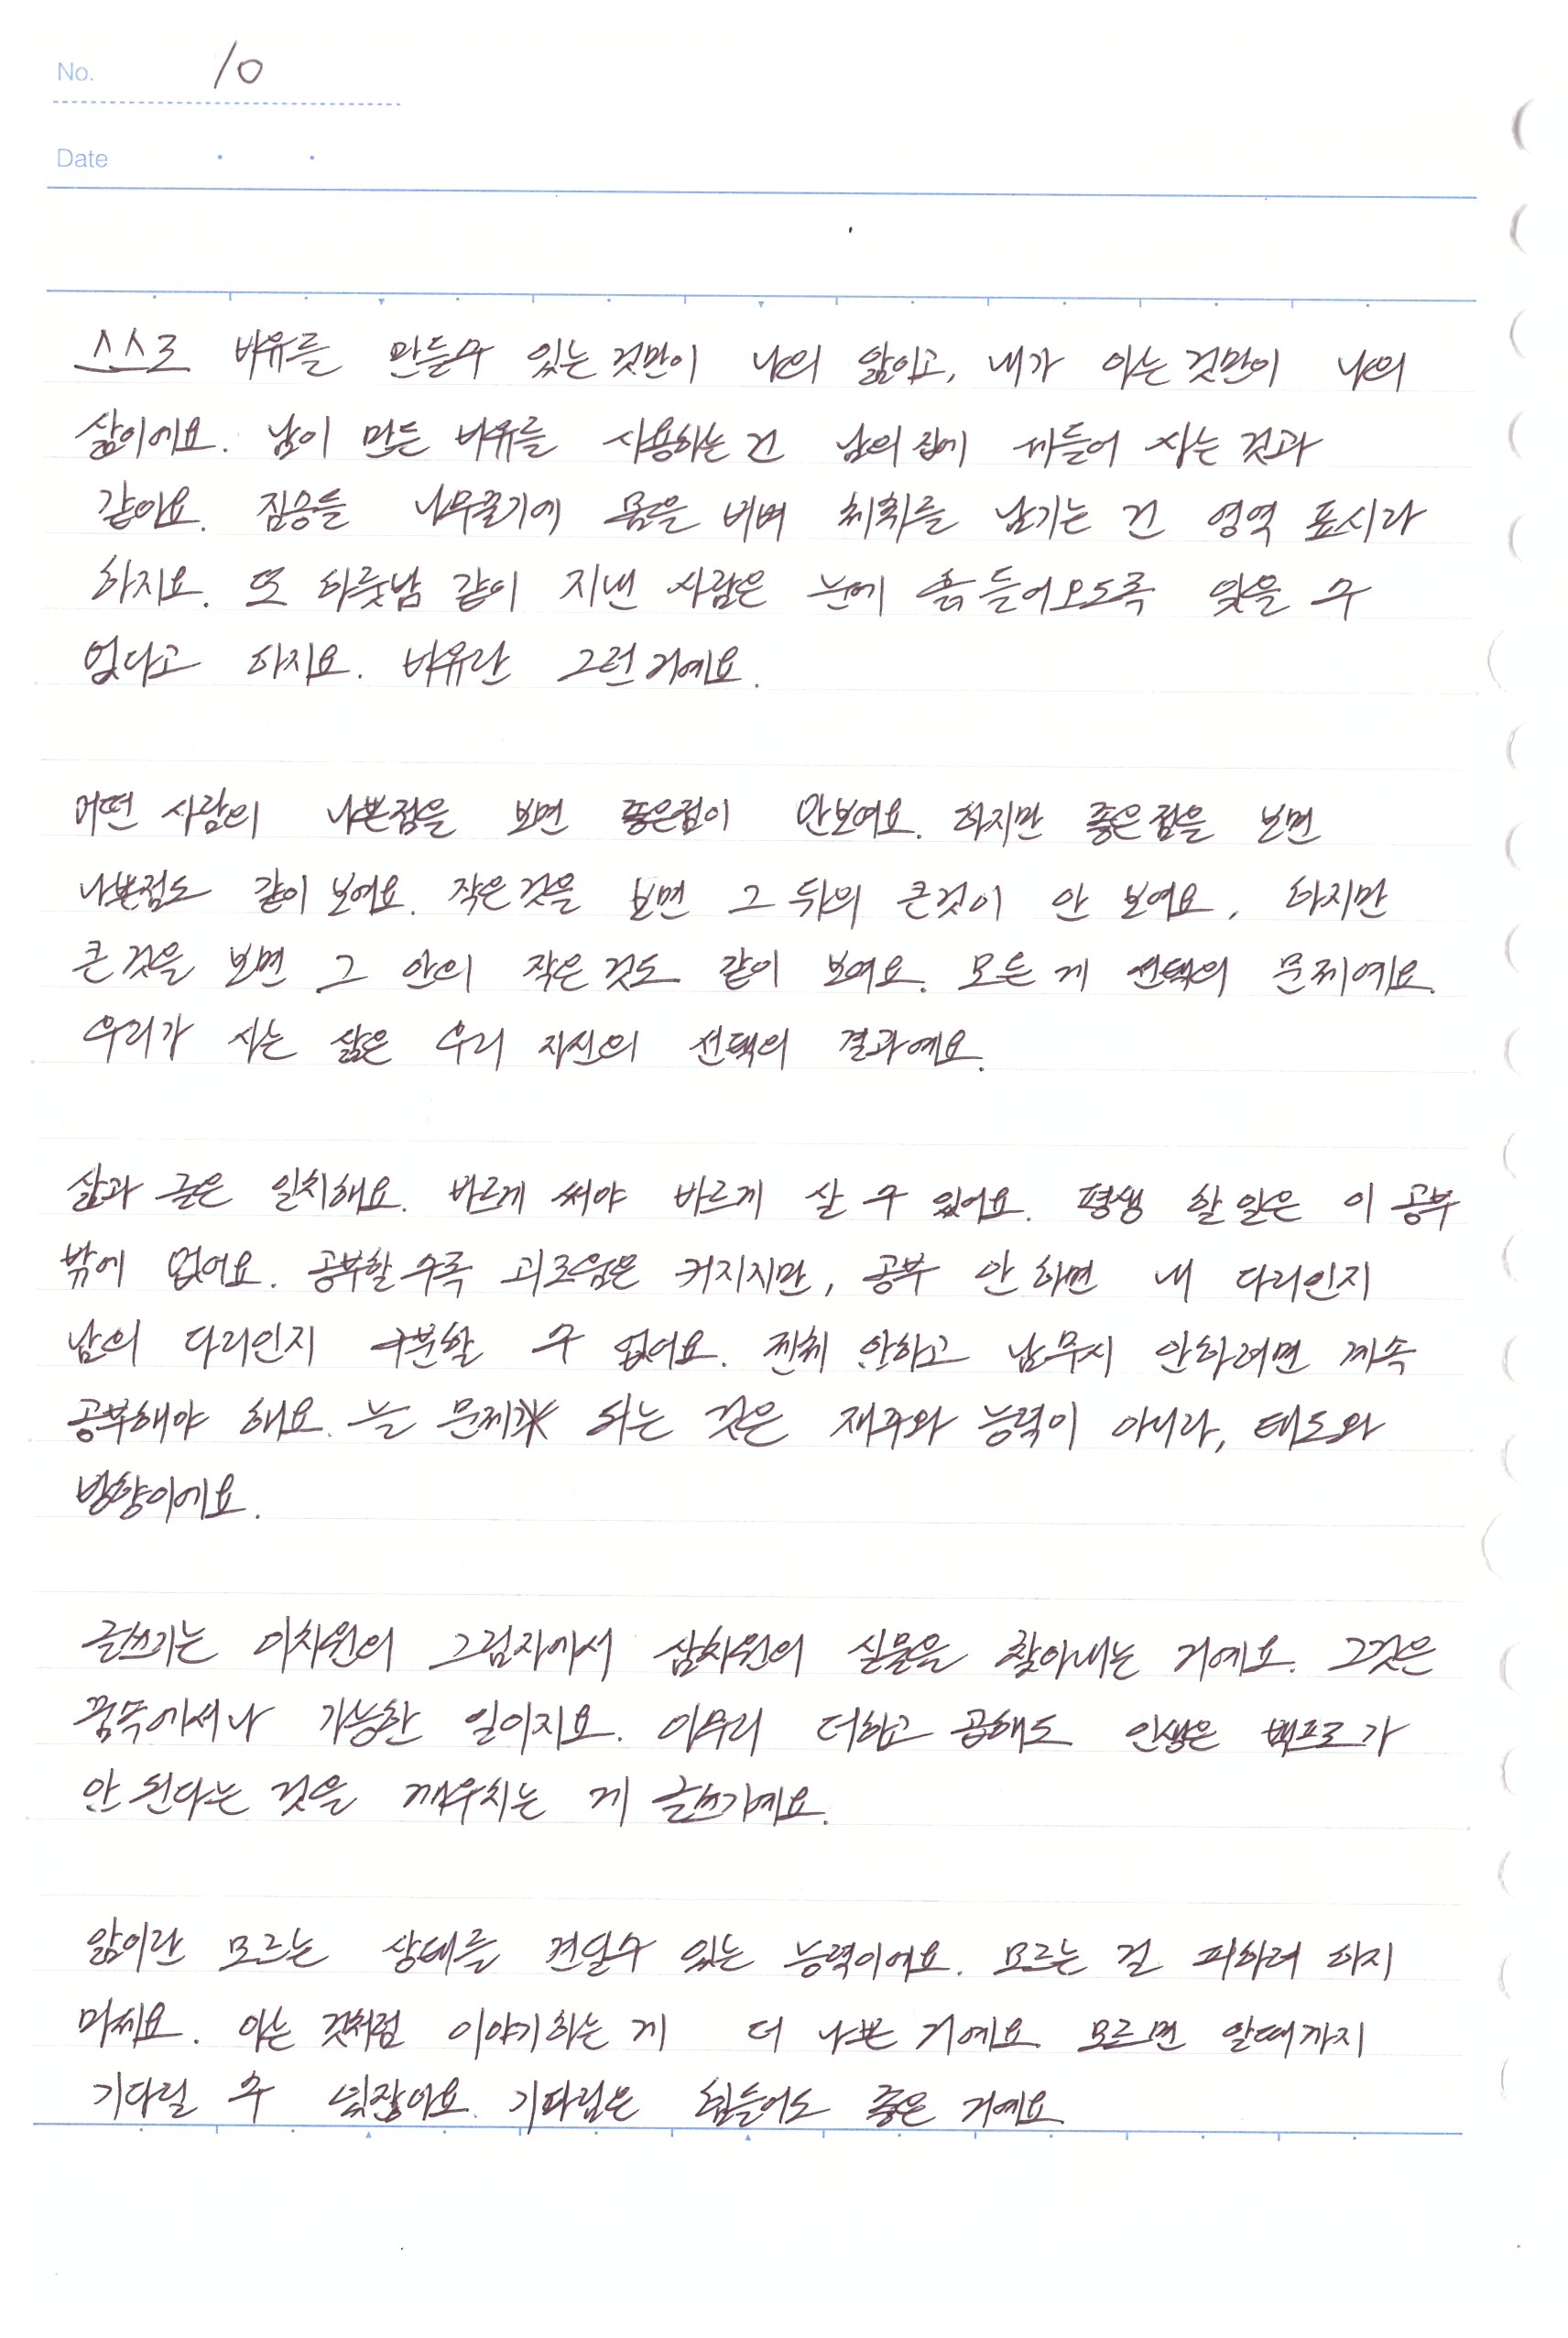 No. 10
Date
스스로 비유를 만들수 있는 것만이 나의 앎이고, 내가 아는 것만이 나의
삶이에요. 남이 만든 비유를 사용하는 건 남의 집에 세들어 사는 것과
같아요. 짐승들 나무줄기에 몸을 비벼 체취를 남기는 건 영역 표시라
하지요. 또 하룻밤 같이 지낸 사람은 눈에 흙 들어오도록 잊을 수
없다고 하지요. 비유란 그런 거예요.
어떤 사람의 나쁜점을 보면 좋은점이 안보여요. 하지만 좋은 점을 보면
나쁜점도 같이 보여요. 작은 것을 보면 그 뒤의 큰것이 안 보여요, 하지만
큰 것을 보면 그 안의 작은 것도 같이 보여요. 모든 게 선택의 문제예요.
우리가 사는 삶은 우리 자신의 선택의 결과예요.
삶과 글은 일치해요. 바르게 써야 바르게 살 수 있어요. 평생 할 일은 이 공부
밖에 없어요. 공부할수록 괴로움은 커지지만, 공부 안 하면 내 다리인지
남의 다리인지 구분할 수 없어요. 잰체 안하고 남무시 안하려면 계속
공부해야 해요. 늘 문제가 되는 것은 재주와 능력이 아니라, 태도와
방향이에요.
글쓰기는 이차원의 그림자에서 삼차원의 실물을 찾아내는 거예요. 그것은
꿈속에서나 가능한 일이지요. 아무리 더하고 곱해도 인생은 백프로가
안 된다는 것을 깨우치는 게 글쓰기예요.
앎이란 모르는 상태를 견딜수 있는 능력이에요. 모르는 걸 피하려 하지
마세요. 아는 것처럼 이야기하는 게 더 나쁜 거예요. 모르면 알때까지
기다릴 수 있잖아요. 기다림은 힘들어도 좋은 거예요.